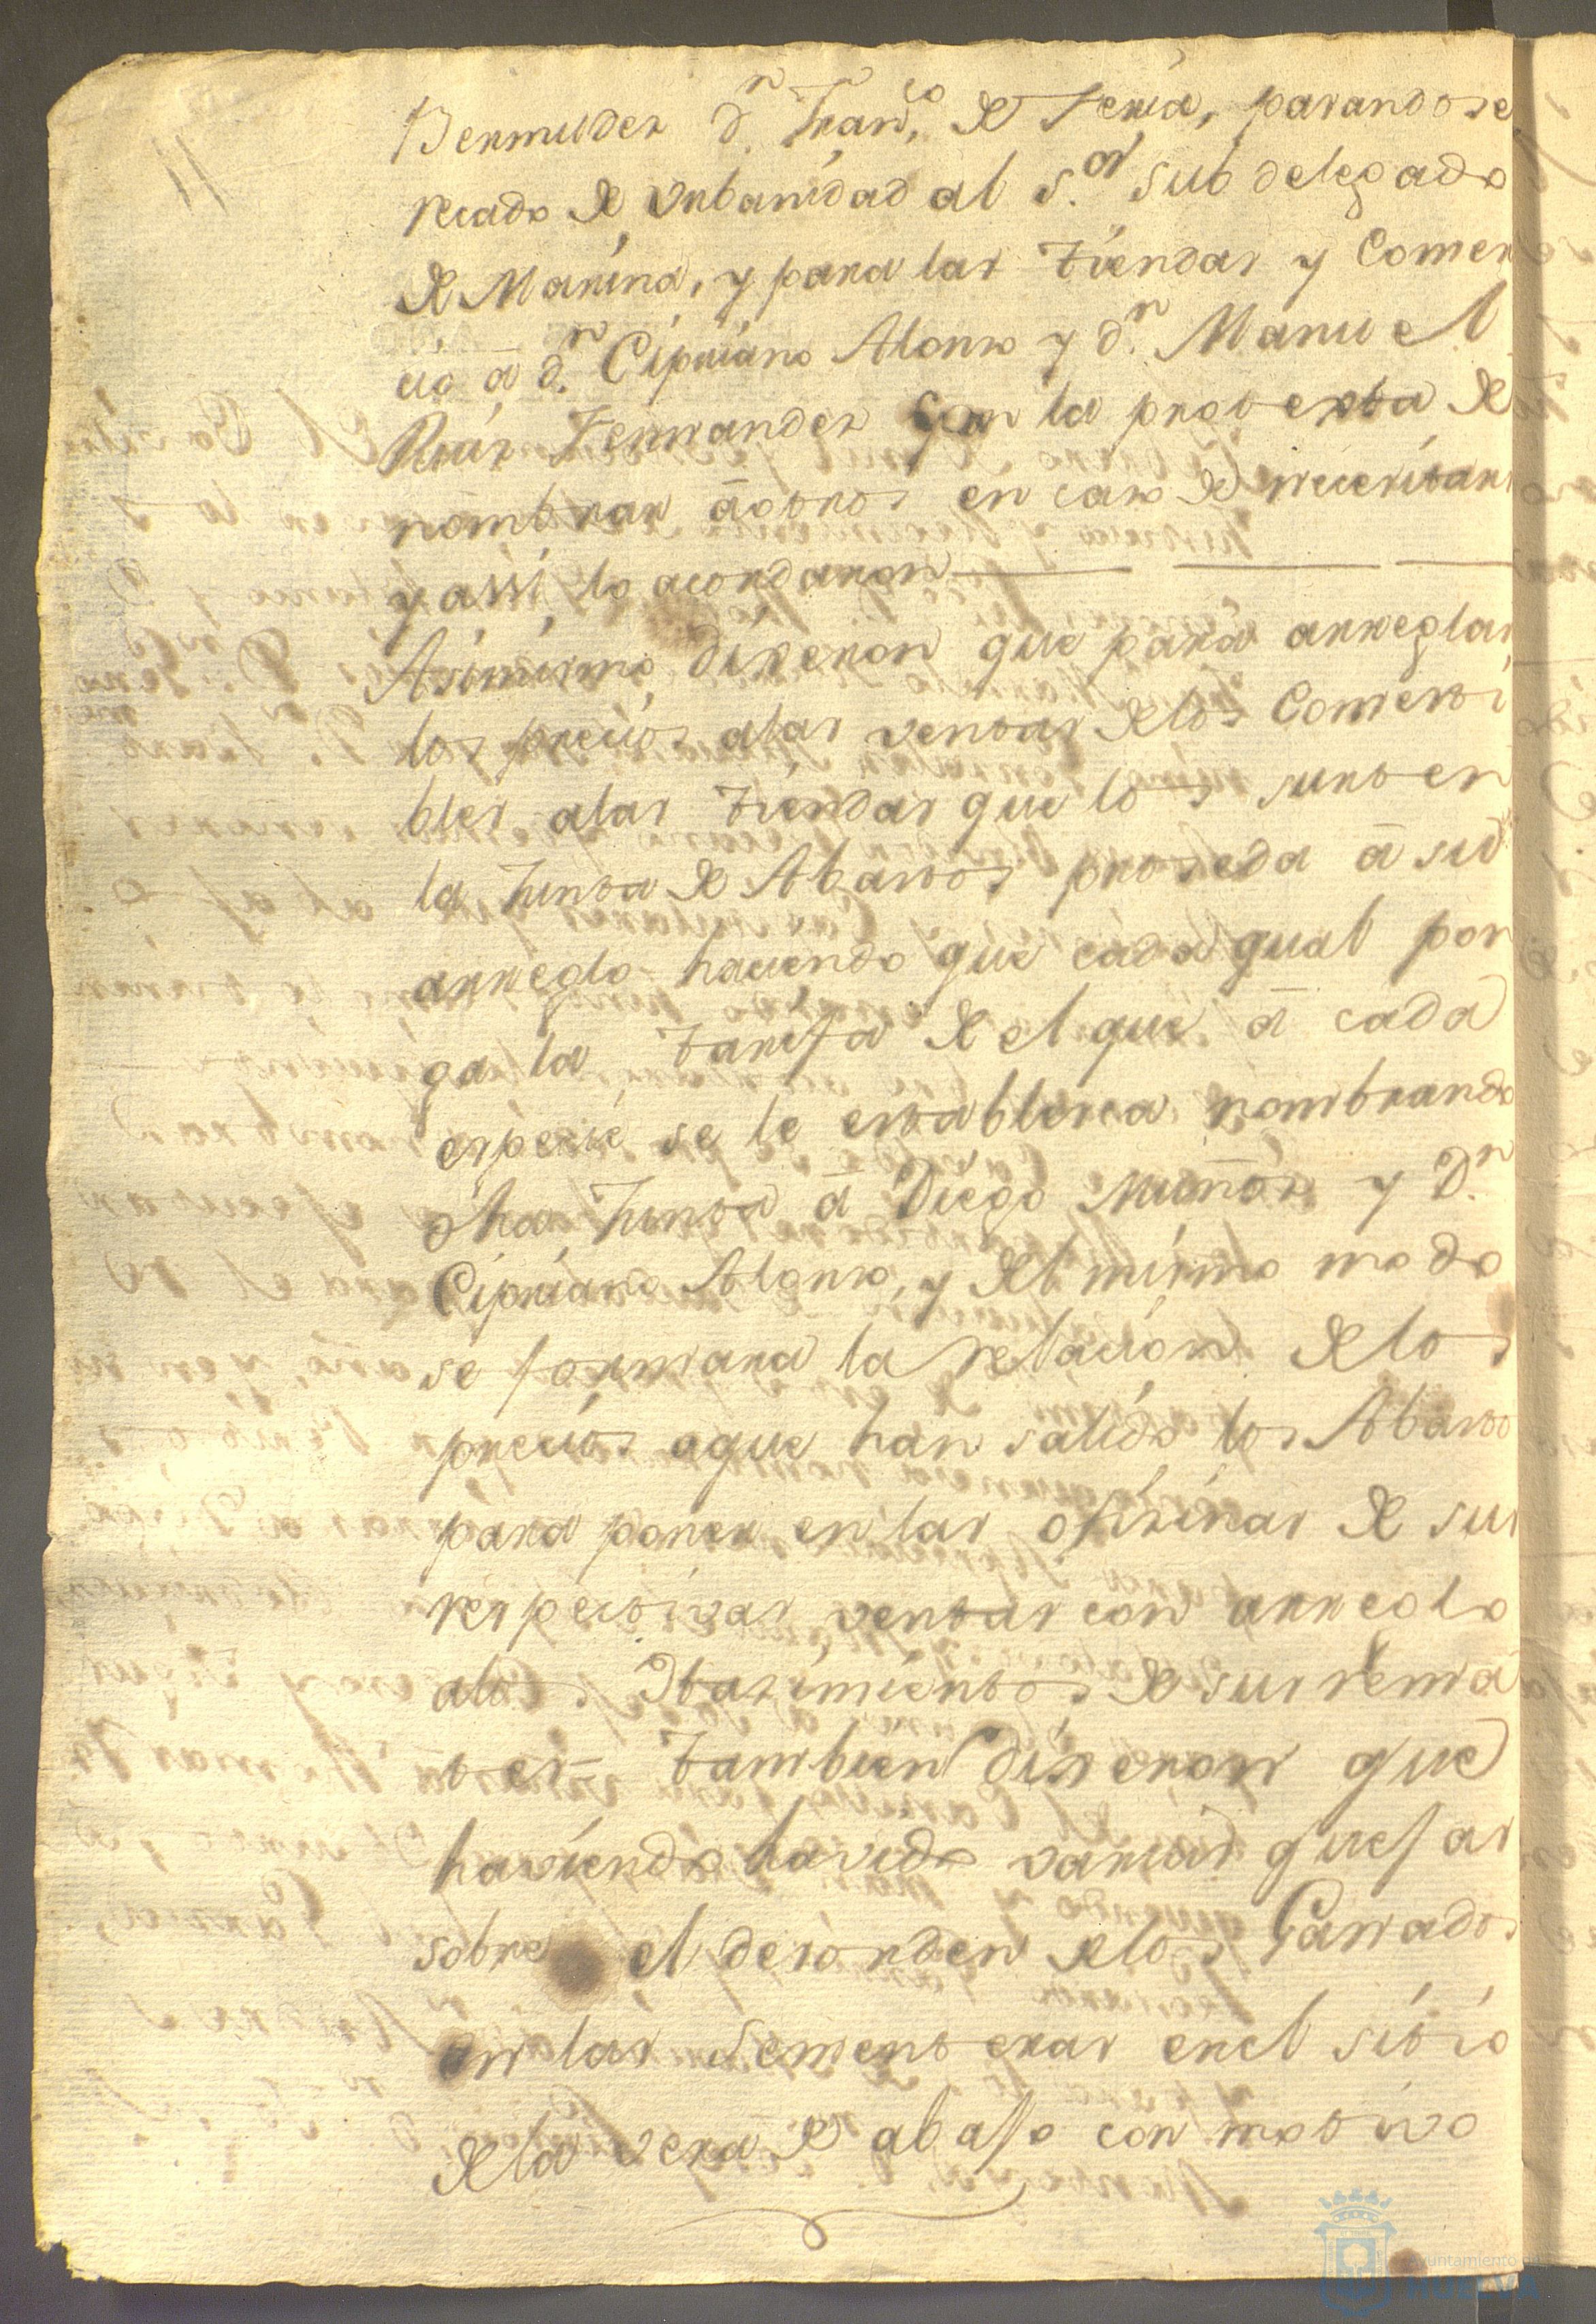 Bermudez d.n Fran.co de Feria, parandose
recado de vrbanidad al s.or subdelegado
de Marina, y para las tiendas y Comer
cio â d.n Cipriano Alonso y d.n Manuel
Ruiz Fernandez con la protexta de
nombrar âotros en caso de necesitars
y assi lo acordaron
Asimismo dixeron que para arreglar
los precios alas ventas delos Comesti
bles alas tiendas que los surten
la Junta de Abastos proseda â su
arreglo haciendo que cada qual pon
ga la tarifa de el que â cada
espesie se le establesca nombrando
dha Junta â Diego Muñoz y D.n
Cipriano Alonso, y del mismo modo
se formara la relacion delos
precios aque han salido los Abasto
para poner en las ofisinas de sus
respectivas ventas con arreglo
alos de sus rema
tes= tambien dixeron que
haviendo havido varias quejas
sobre el desorden delos Ganados
en las sementeras enel sitio
dela vera de abajo con motivo
11
Ayuntamiento de
HUELVA